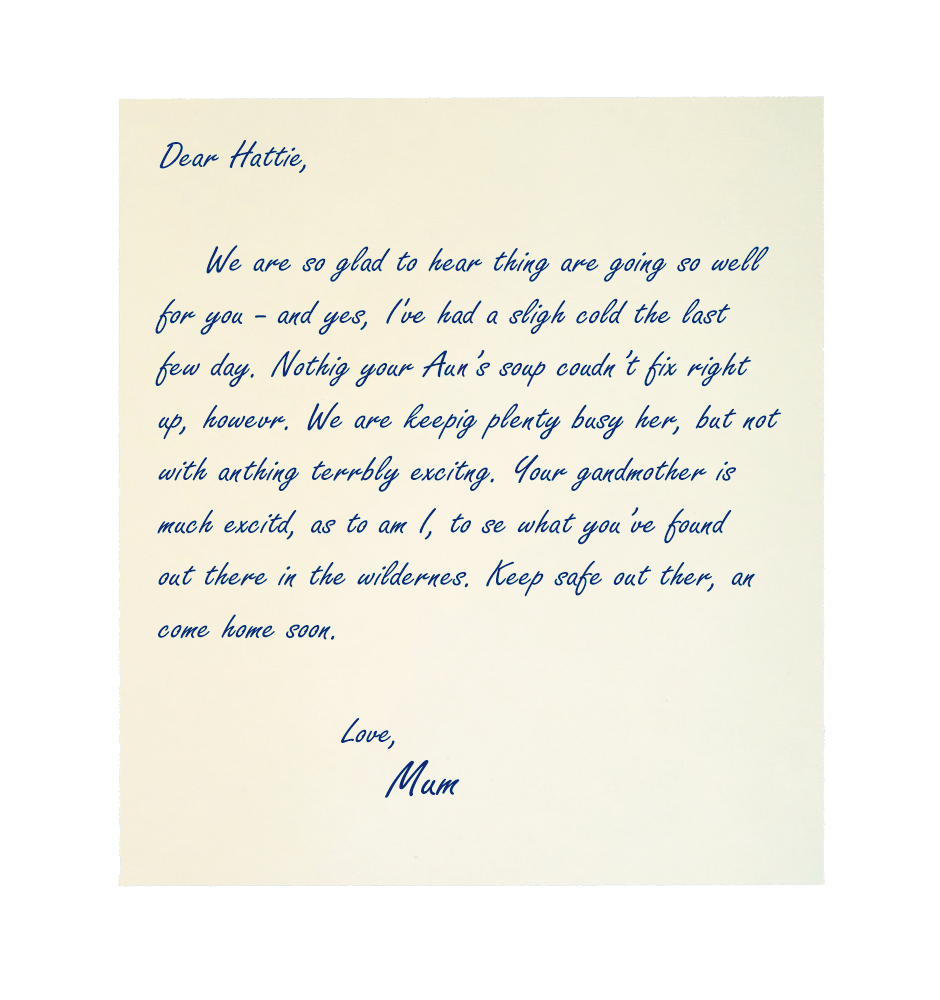 Dear Hattie,
We are so glad to hear thing are going so well
for you - and yes, I've had a sligh cold the last
few day. Nothig your Aun's soup coudn't fix right
up, howevr. We are keepig plenty busy her, but not
with anthing terrbly excitng. Your gandmother is
much excitd, as to am I, to se what you've found
out there in the wildernes. Keep safe out ther, an
come home soon.
Love,
Mum